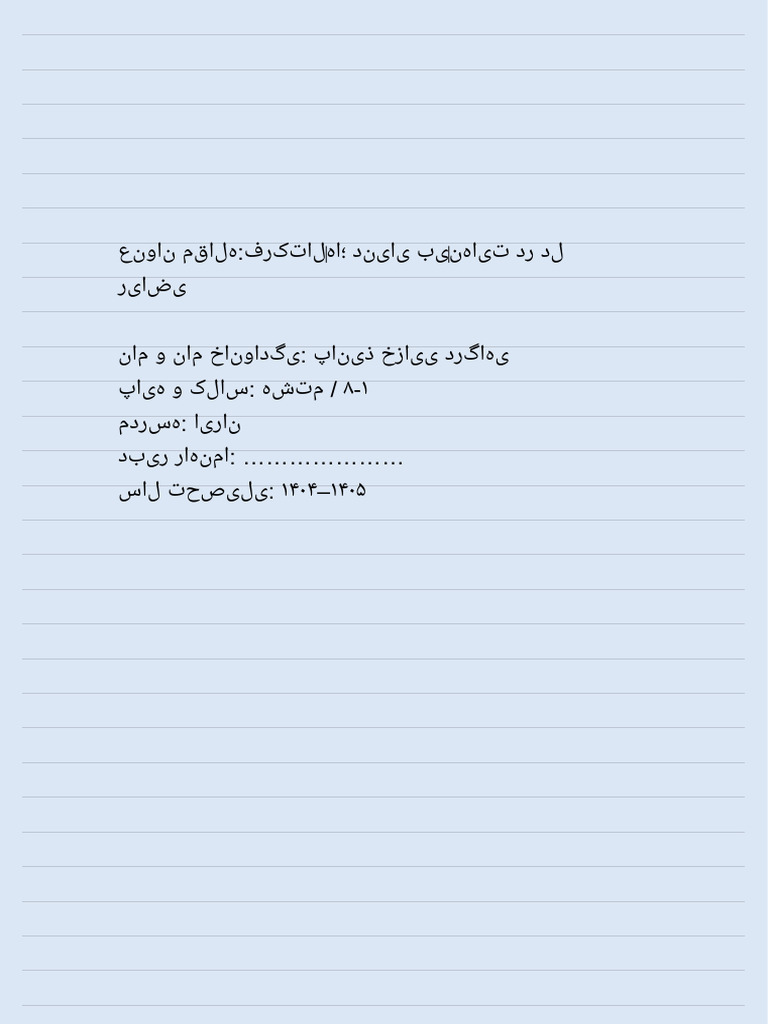 عنوان مقاله:فرکتال‌ها؛ دنیای بی‌نهایت در دل
ریاضی
نام و نام خانوادگی: پانیذ خزایی درگاهی
پایه و کلاس: هشتم / ۸-۱
مدرسه: ایران
دبیر راهنما: …………………
سال تحصیلی: ۱۴۰۴–۱۴۰۵